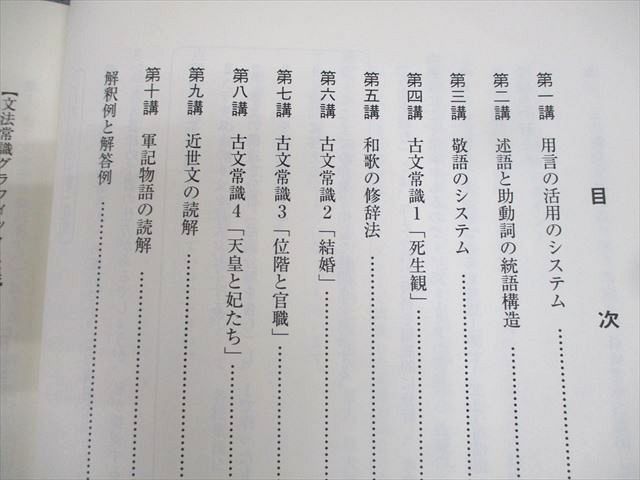 目次
第一講 用言の活用のシステム
第二講 述語と助動詞の統語構造
第三講 敬語のシステム
第四講 古文常識1「死生観」
第五講 和歌の修辞法
第六講 古文常識2「結婚」
第七講 古文常識3「位階と官職」
第八講 古文常識4「天皇と妃たち」
第九講 近世文の読解
第十講 軍記物語の読解
解釈例と解答例
【文法常識グラフィック